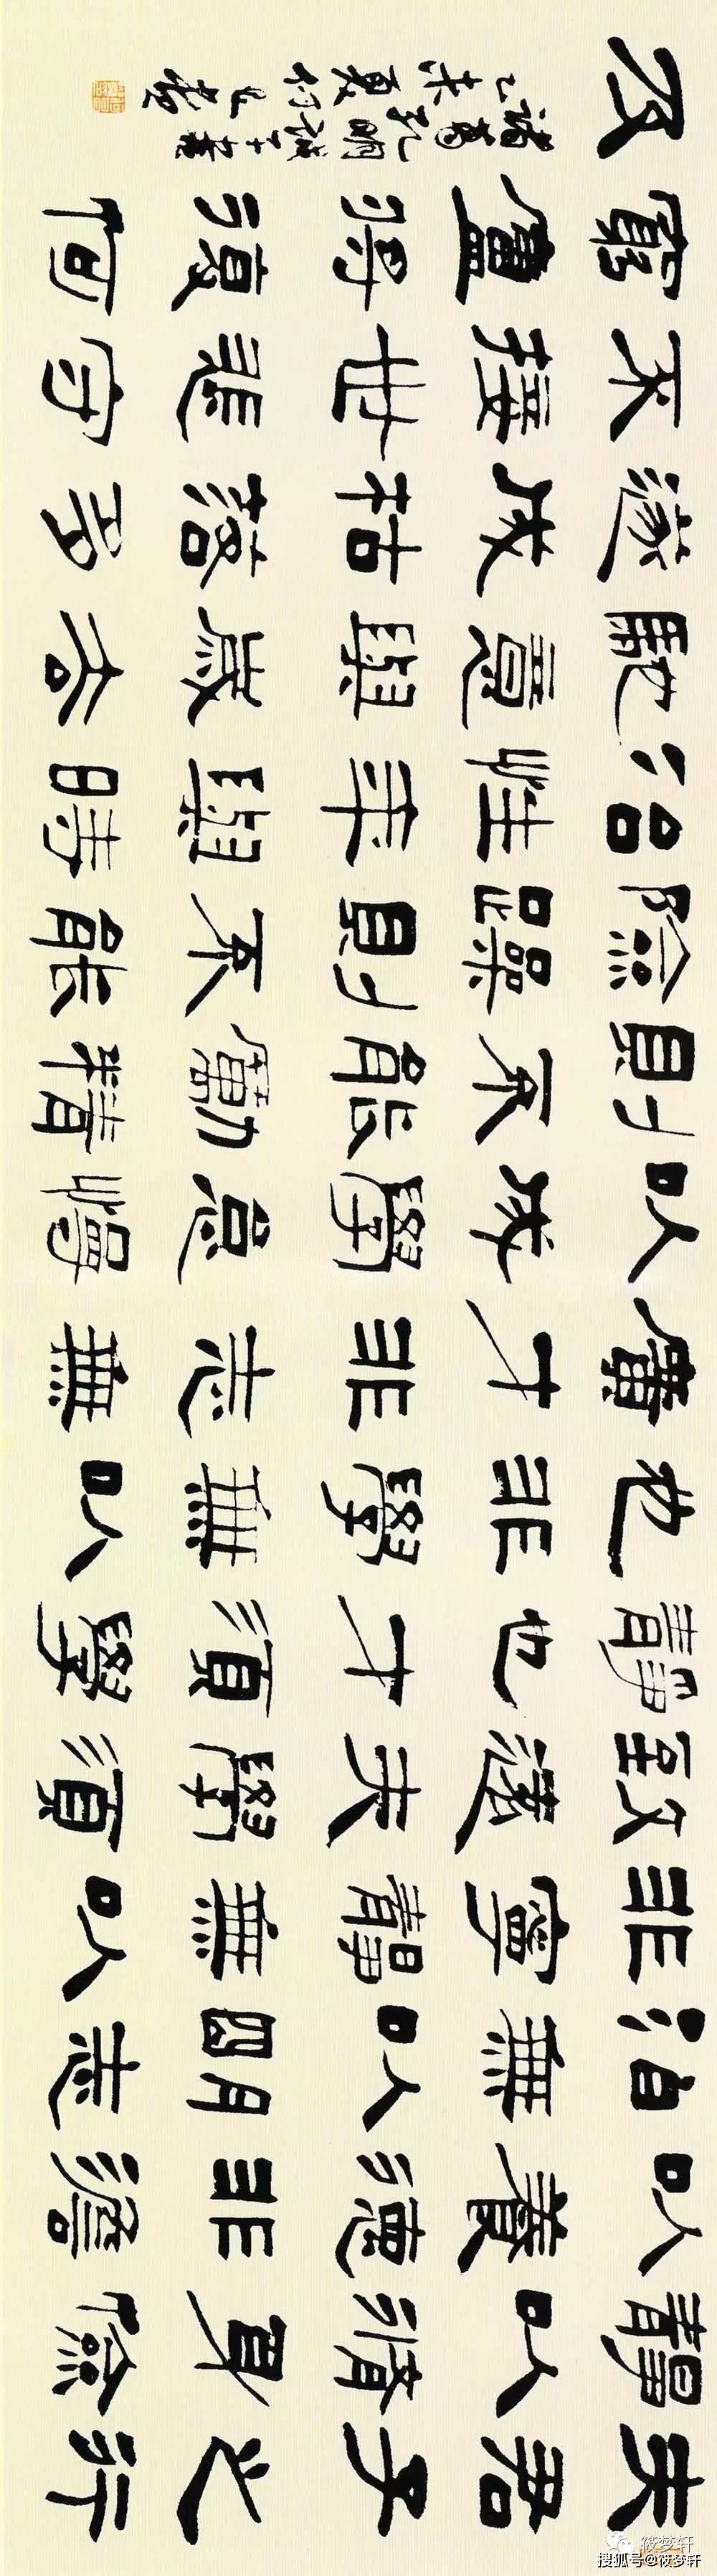 夫君子之行
靜以脩身儉
以養德非澹
泊無以明志
非寧靜無以
致遠夫學須
靜也才須學
也非學無以
廣才非志無
以成學怠慢
則不能勵精
險躁則不能
治性年與時
馳意與歲去
遂成枯落多
不接世悲守
窮廬將復何
及
諸葛孔明誡子書
未夏
筱梦轩
搜狐号@筱梦轩